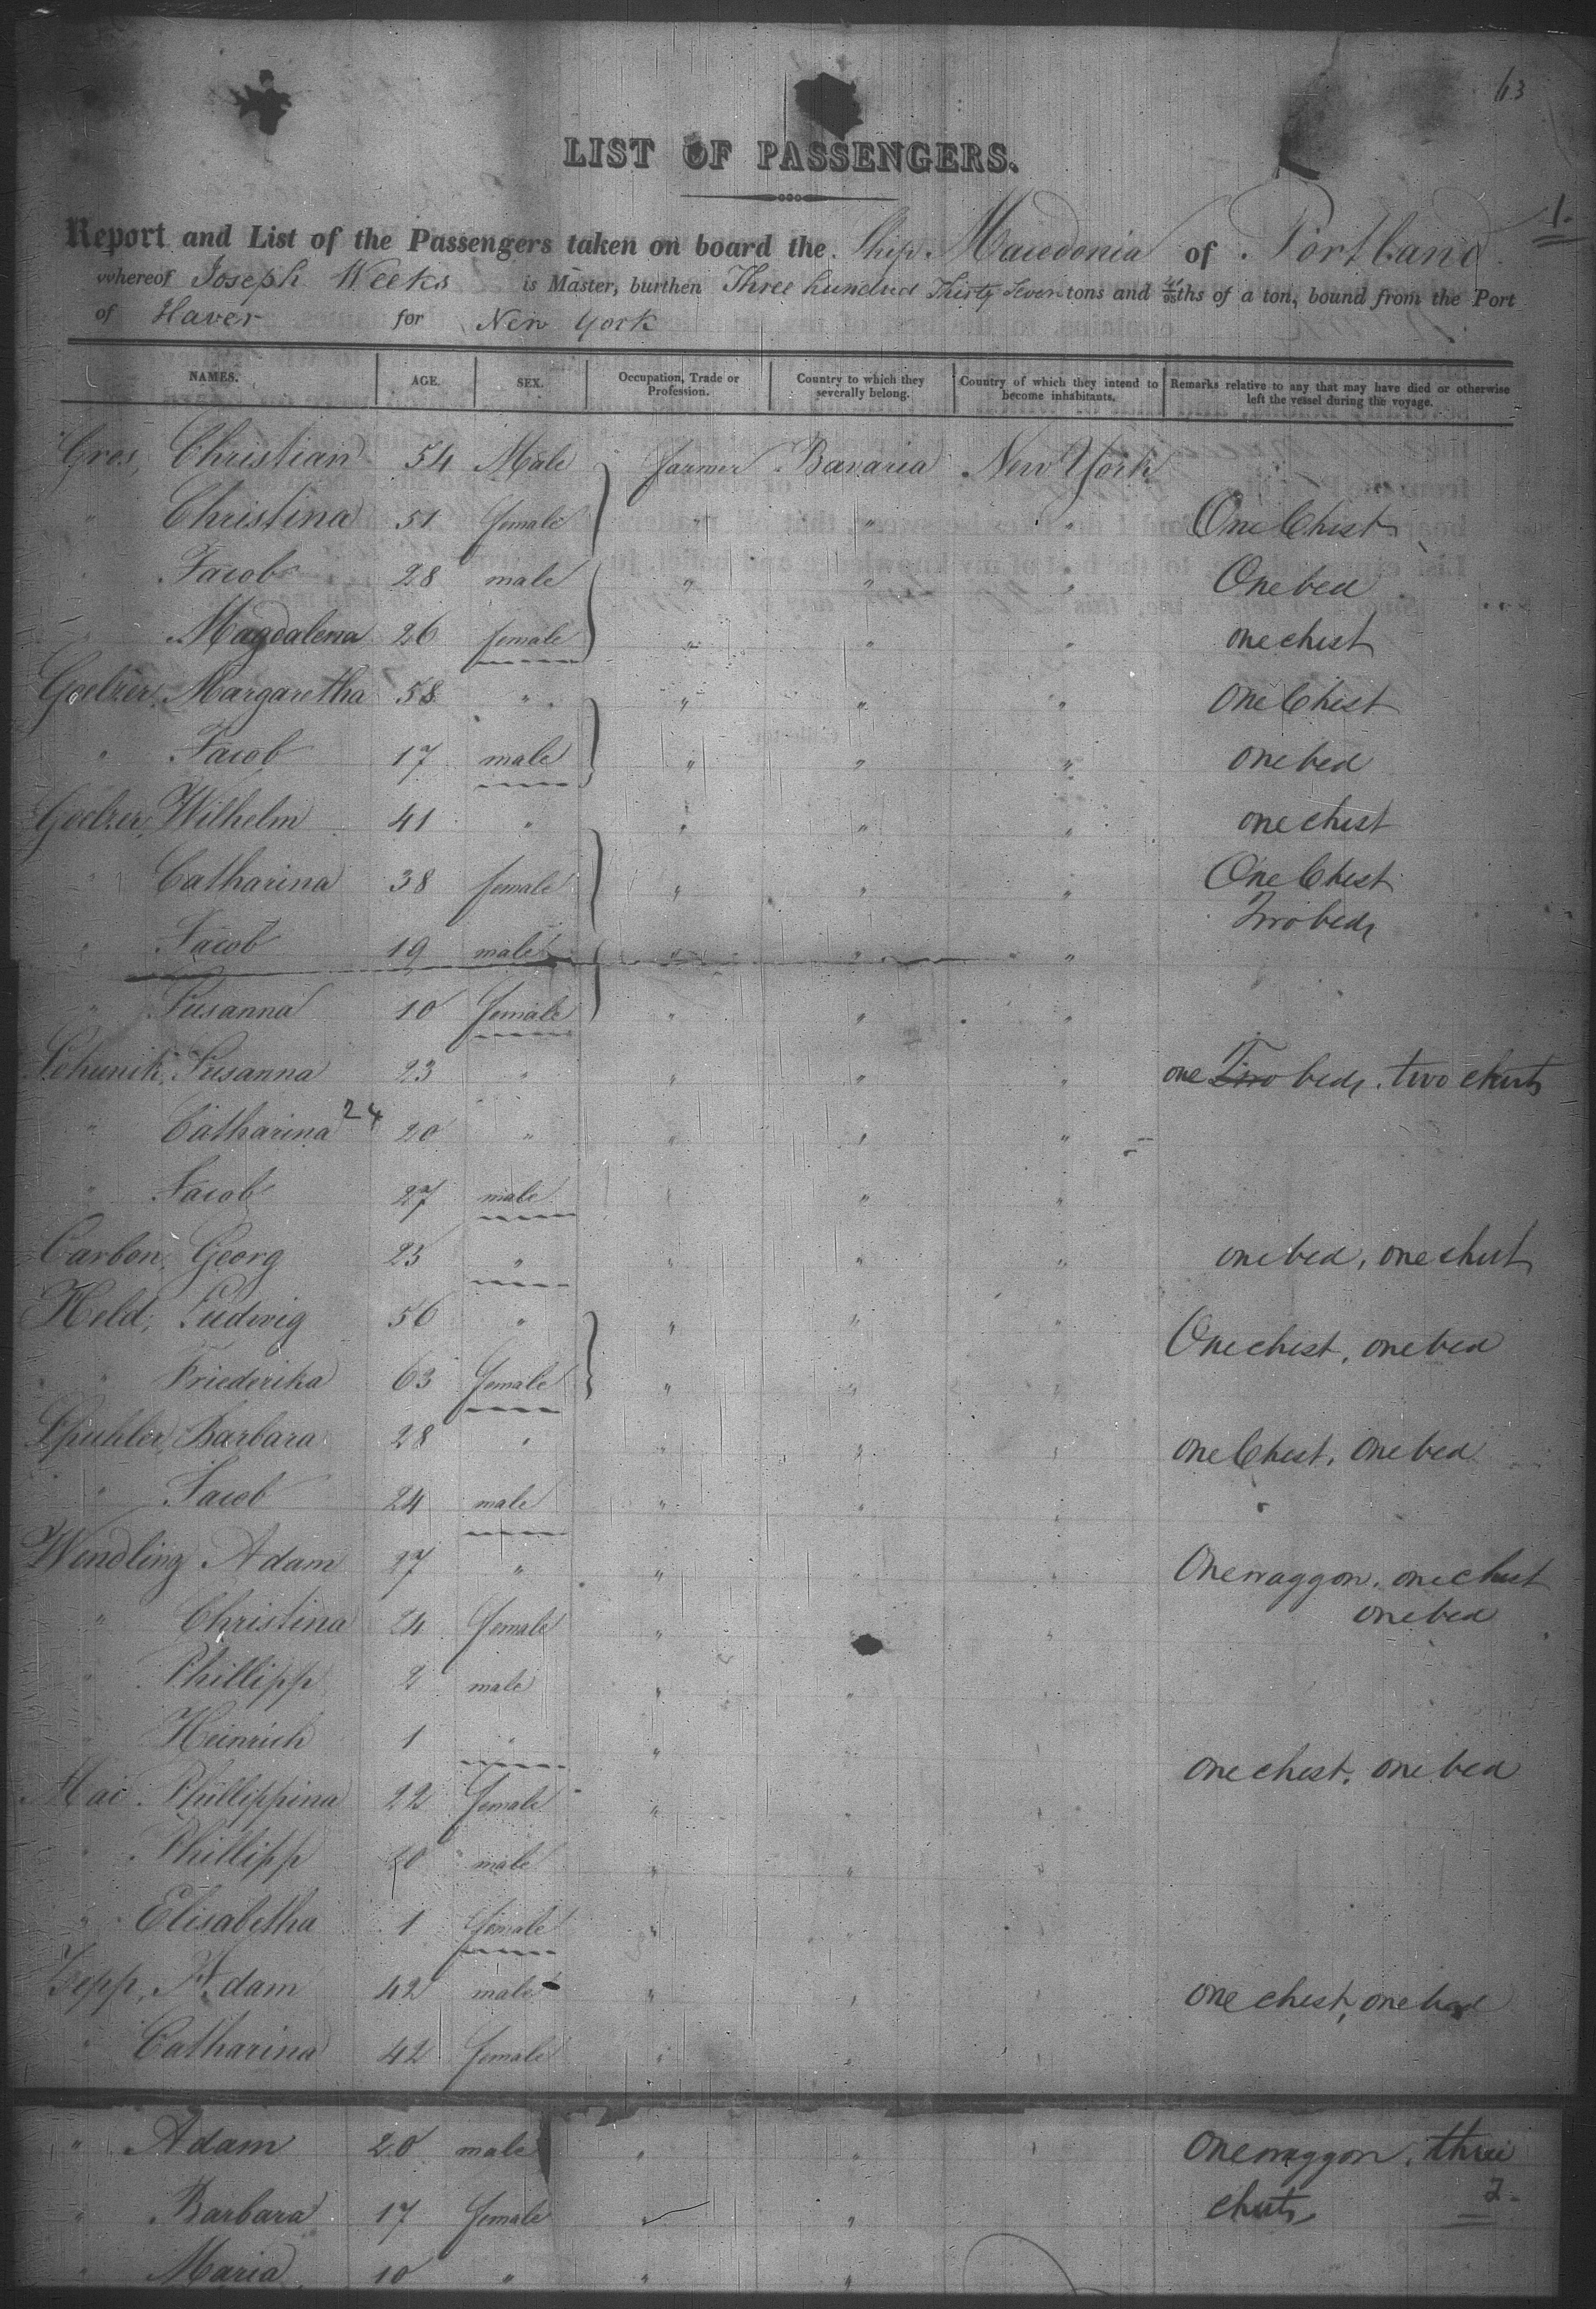 63
LIST OF PASSENGERS.
1.
Report and List of the Passengers taken on board the Ship Macedonia of Portland
whereof Joseph Weeks is Master, burthen Three hundred Thirty Seven tons and /95ths of a ton, bound from the Port
of Haver for New York
NAMES. AGE. SEX. Occupation, Trade or Profession. Country to which they severally belong. Country of which they intend to become inhabitants. Remarks relative to any that may have died or otherwise left the vessel during the voyage.
Gros, Christian 54 Male farmer Bavaria New York
" Christina 51 female " " " One Chest
" Jacob 28 male " " " One bed
" Magdalena 26 female " " " one chest
Goelzer, Margaretha 58 " " " " One Chest
" Jacob 17 male " " " one bed
Goelzer, Wilhelm 41 " " " " one chest
" Catharina 38 female " " " One Chest
Two beds
" Jacob 19 male " " "
" Susanna 10 female " " "
Schunik, Susanna 23 " " " " one Two beds. two chests
" Catharina 24 20 " " " "
" Jacob 27 male " " "
Carbon, Georg 25 " " " " one bed, one chest
Held, Ludwig 56 " " " "
One chest, one bed
" Friederika 63 female " " "
Spuhler, Barbara 28 " " " " one Chest, One bed
" Jacob 24 male " " "
Wendling Adam 27 " " " " One waggon, one chest
one bed
" Christina 24 female " " "
" Phillipp 2 male " " "
" Heinrich 1 " " " "
one chest, one bed
Mai Phillippina 22 female " " "
" Phillipp male " " "
" Elisabetha 1 female "
Zepp, Adam 42 male " " " one chest, one bed
" Catharina 42 female " " "
" Adam 20 male " " " One waggon, three
" Barbara 17 female " " chests
2.
" Maria 10 " " "